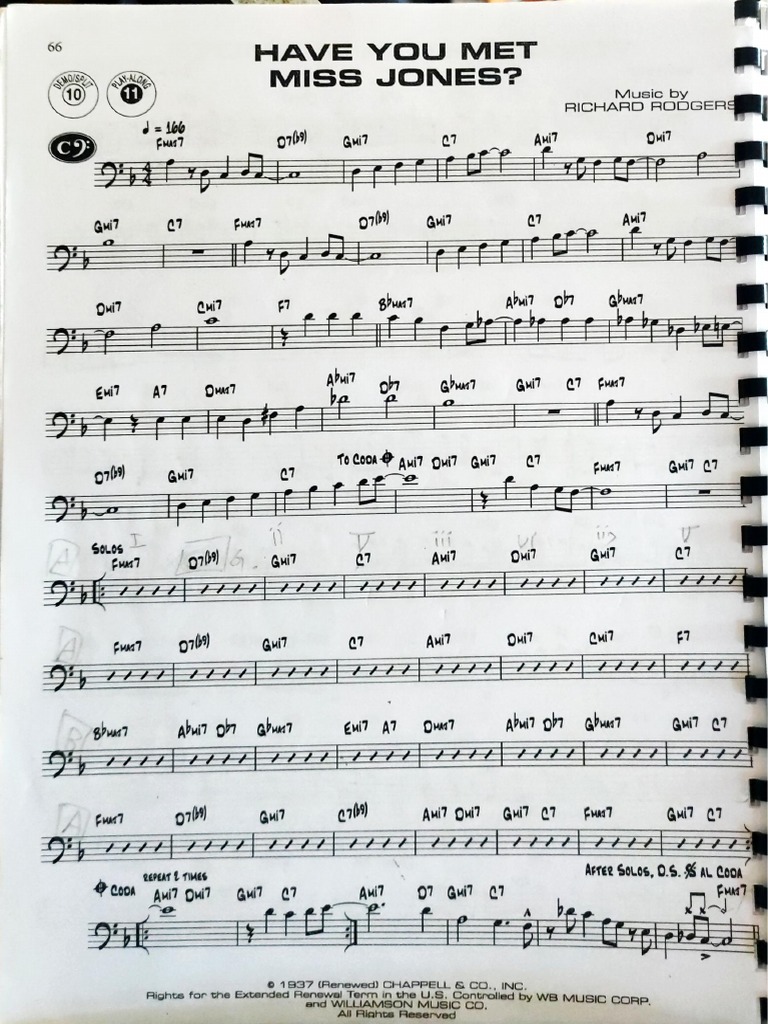 66
HAVE YOU MET
MISS JONES?
DEMO/SPLIT
10
PLAY-ALONG
11
Music by
RICHARD RODGERS
♩ = 166
C 𝄢
FMAJ7 D7(♭9) GMI7 C7 AMI7 DMI7
4
4
GMI7 C7 FMAJ7 D7(♭9) GMI7 C7 AMI7
DMI7 CMI7 F7 B♭MAJ7 A♭MI7 D♭7 G♭MAJ7
EMI7 A7 DMAJ7 A♭MI7 D♭7 G♭MAJ7 GMI7 C7 FMAJ7
TO CODA
D7(♭9) GMI7 C7 AMI7 DMI7 GMI7 C7 FMAJ7 GMI7 C7
SOLOS I ii V iii vi ii V
A FMAJ7 D7(♭9) G. GMI7 C7 AMI7 DMI7 GMI7 C7
A FMAJ7 D7(♭9) GMI7 C7 AMI7 DMI7 CMI7 F7
B B♭MAJ7 A♭MI7 D♭7 G♭MAJ7 EMI7 A7 DMAJ7 A♭MI7 D♭7 G♭MAJ7 GMI7 C7
A FMAJ7 D7(♭9) GMI7 C7(♭9) AMI7 DMI7 GMI7 C7 FMAJ7 GMI7 C7
AFTER SOLOS, D.S. 𝄋 AL CODA
CODA REPEAT 2 TIMES
AMI7 DMI7 GMI7 C7 AMI7 D7 GMI7 C7 FMAJ7
© 1937 (Renewed) CHAPPELL & CO., INC.
Rights for the Extended Renewal Term in the U.S. Controlled by WB MUSIC CORP.
and WILLIAMSON MUSIC CO.
All Rights Reserved